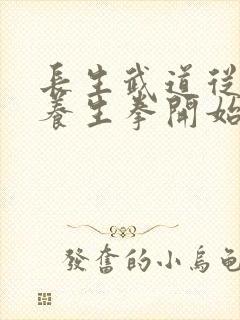 長生武道從
養生拳開始
發奮的小烏龜